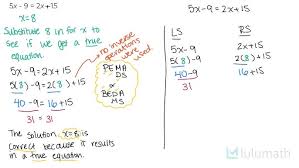 5x-9 = 2x+15
x=8
Substitute 8 in for x to
see if we get a true
equation.
5x-9 = 2x+15
5(8)-9 = 2(8)+15
40-9 = 16+15
31 = 31
The solution, x=8 is
correct because it results
in a true equation.
no inverse
operations
were
used.
PEMA
DS
or
BEDA
MS
5x-9 = 2x+15
LS
RS
5x-9
2x+15
5(8)-9
2(8)+15
40-9
16+15
31
31
lulumath